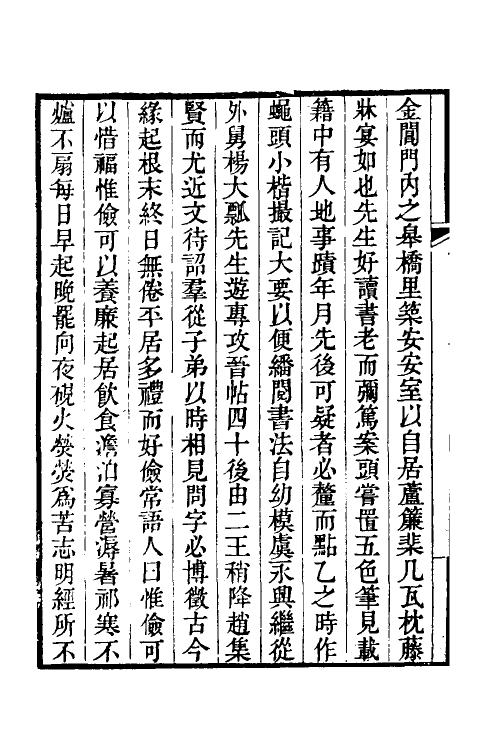 金閶門內之皋橋里築安安室以自居蘆簾棐几瓦枕藤
牀宴如也先生好讀書老而彌篤案頭嘗置五色筆見載
籍中有人地事蹟年月先後可疑者必釐而點乙之時作
蠅頭小楷撮記大要以便繙閱書法自幼模虞永興繼從
外舅楊大瓢先生遊專攻晉帖四十後由二王稍降趙集
賢而尤近文待詔羣從子弟以時相見問字必博徵古今
緣起根末終日無倦平居多禮而好儉常語人曰惟儉可
以惜福惟儉可以養廉起居飲食澹泊寡營溽暑祁寒不
爐不扇每日早起晚罷向夜硯火熒熒爲苦志明經所不